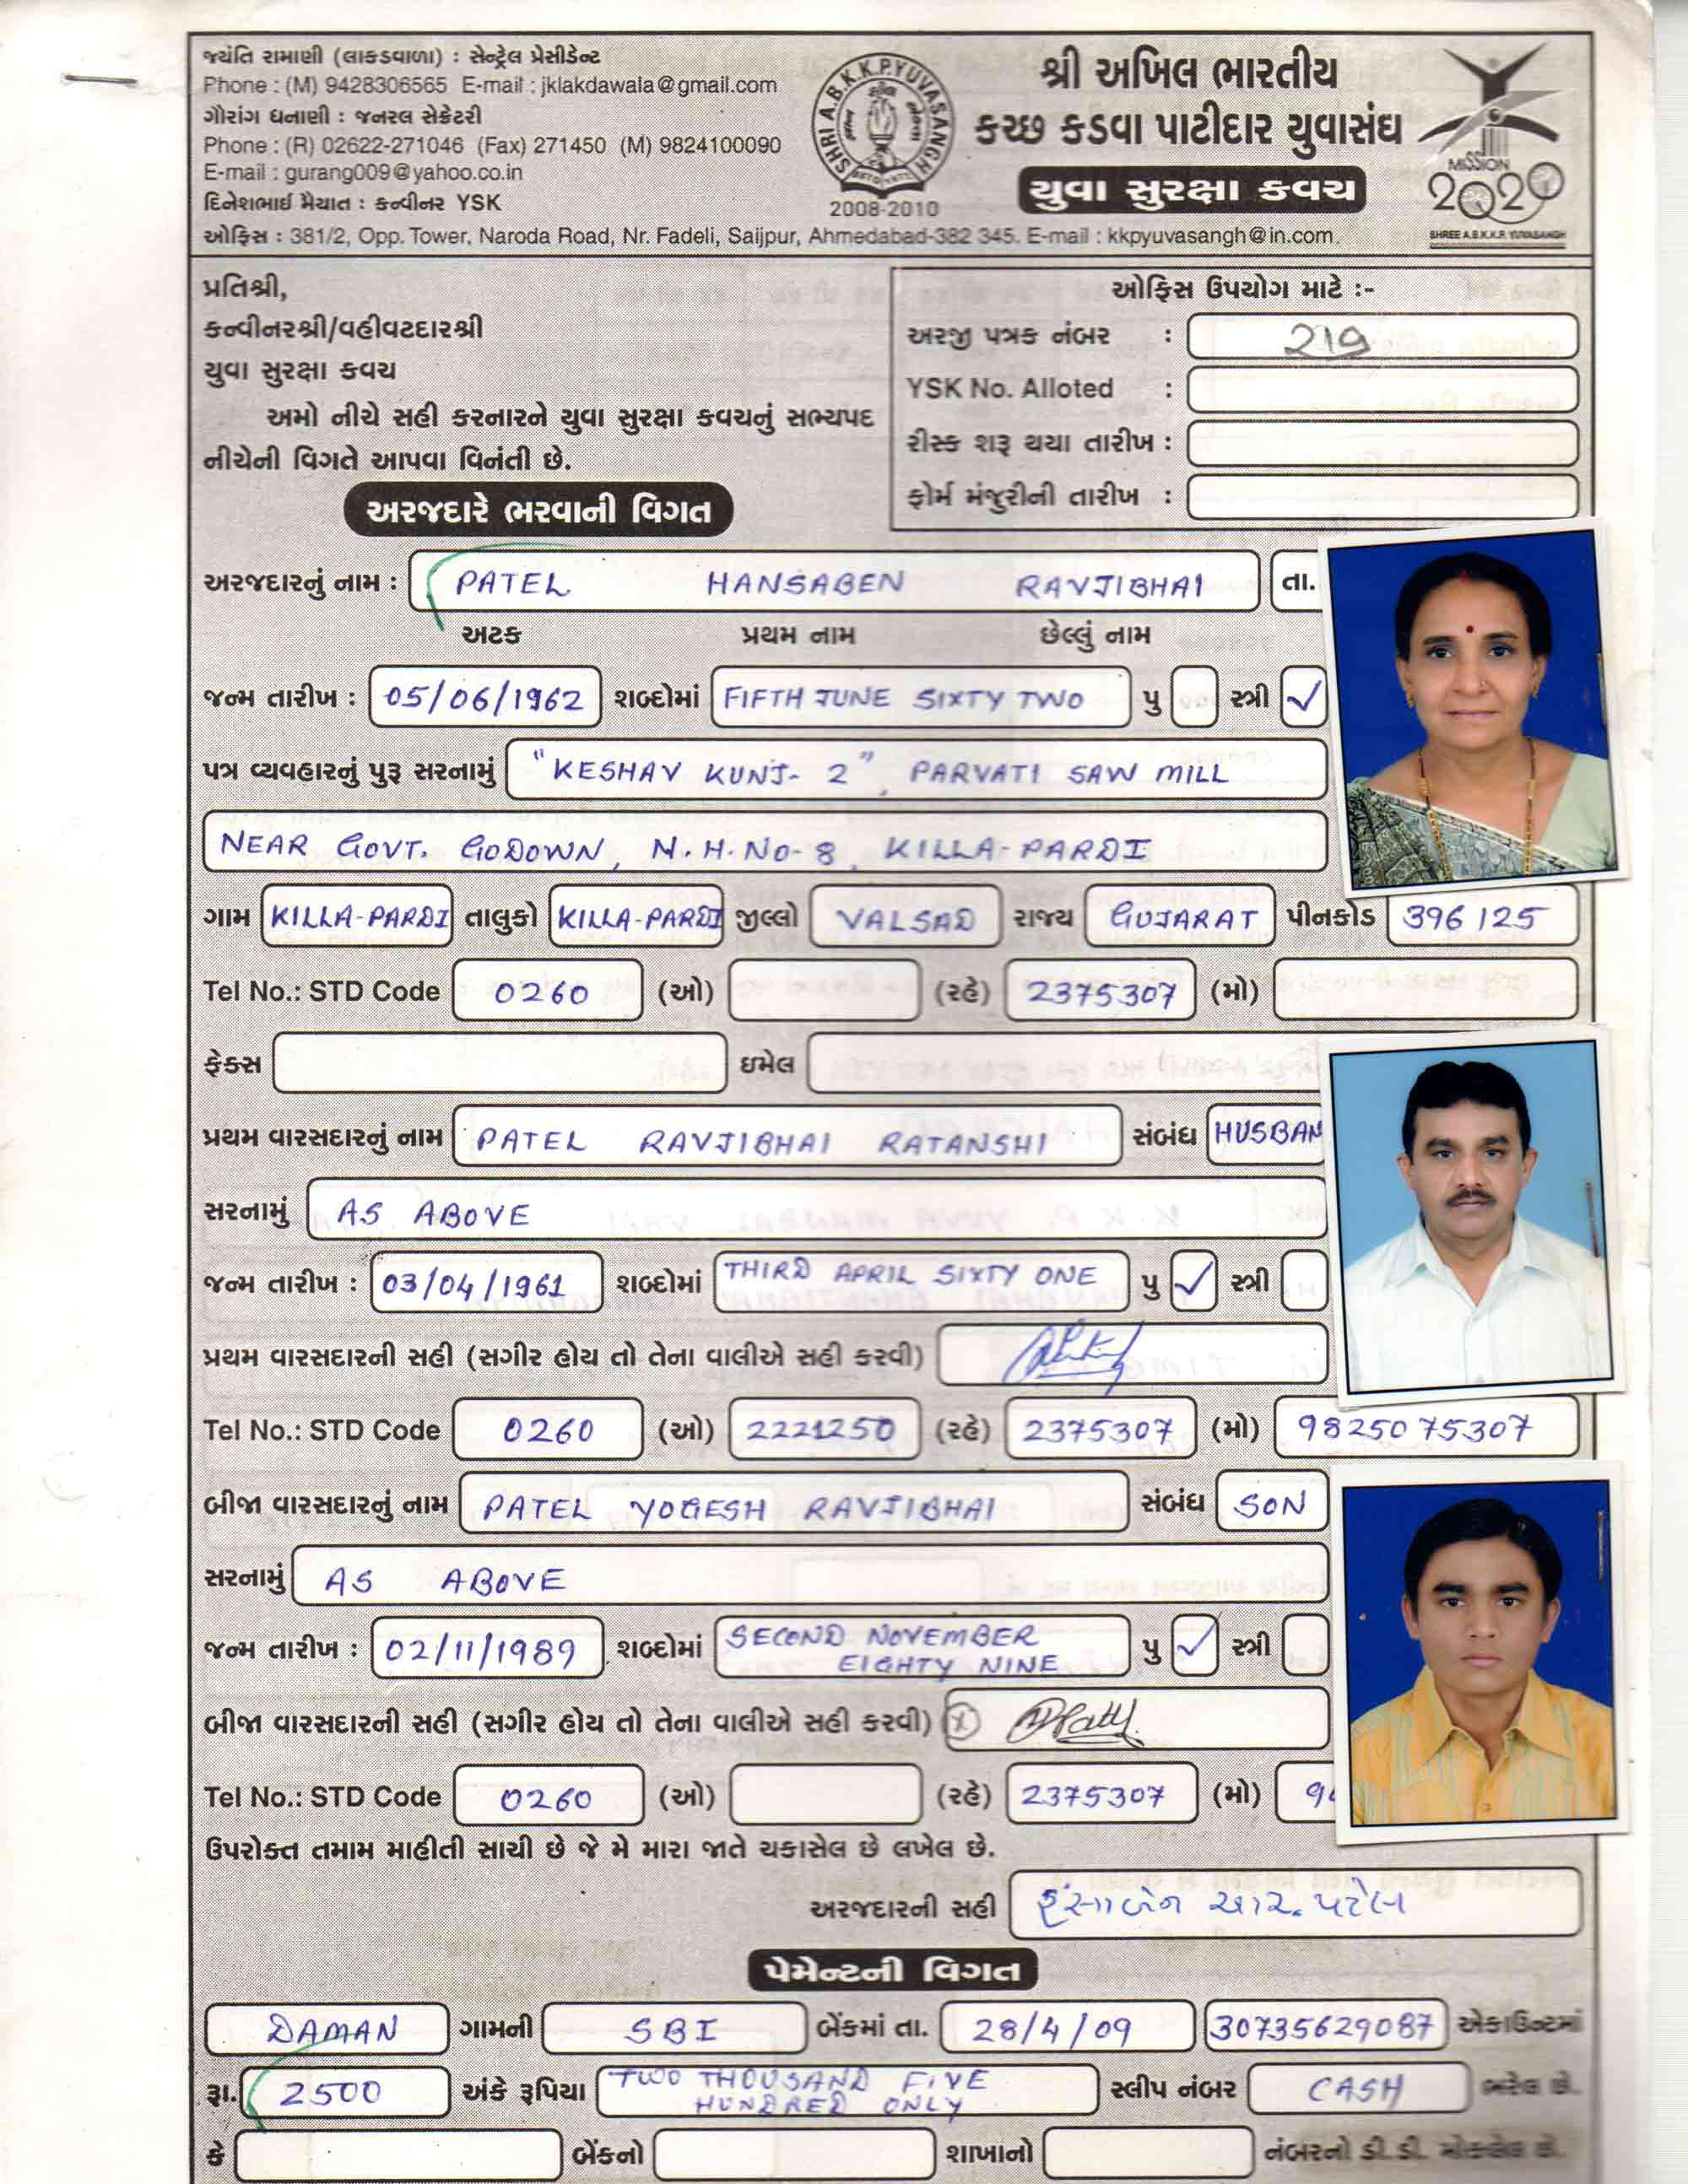 જયંતિ રામાણી (લાકડાવાળા) : સેન્ટ્રેલ પ્રેસીડેન્ટ
Phone : (M) 9428306565 E-mail : jklakdawala@gmail.com
ગૌરાંગ ધનાણી : જનરલ સેક્રેટરી
Phone : (R) 02622-271046 (Fax) 271450 (M) 9824100090
E-mail : gurang009@yahoo.co.in
દિનેશભાઈ મૈયાત : કન્વીનર YSK
SHRI A.B.K.K.P. YUVASANGH
2008-2010
શ્રી અખિલ ભારતીય
કચ્છ કડવા પાટીદાર યુવાસંઘ
યુવા સુરક્ષા કવચ
MISSION
2020
SHREE A.B.K.K.P. YUVASANGH
ઓફિસ : 381/2, Opp. Tower, Naroda Road, Nr. Fadeli, Saijpur, Ahmedabad-382 345. E-mail : kkpyuvasangh@in.com.
પ્રતિશ્રી,
કન્વીનરશ્રી/વહીવટદારશ્રી
યુવા સુરક્ષા કવચ
અમો નીચે સહી કરનારને યુવા સુરક્ષા કવચનું સભ્યપદ
નીચેની વિગતે આપવા વિનંતી છે.
ઓફિસ ઉપયોગ માટે :-
અરજી પત્રક નંબર : 219
YSK No. Alloted :
રીસ્ક શરૂ થયા તારીખ :
ફોર્મ મંજુરીની તારીખ :
અરજદારે ભરવાની વિગત
અરજદારનું નામ : PATEL HANSABEN RAVJIBHAI તા.
અટક પ્રથમ નામ છેલ્લું નામ
જન્મ તારીખ : 05/06/1962 શબ્દોમાં FIFTH JUNE SIXTY TWO પુ સ્ત્રી ✓
પત્ર વ્યવહારનું પુરૂ સરનામું "KESHAV KUNJ- 2", PARVATI SAW MILL
NEAR GOVT. GODOWN, N.H.NO-8, KILLA-PARDI
ગામ KILLA-PARDI તાલુકો KILLA-PARDI જીલ્લો VALSAD રાજ્ય GUJARAT પીનકોડ 396125
Tel No.: STD Code 0260 (ઓ) (રહે) 2375307 (મો)
ફેક્સ ઇમેલ
પ્રથમ વારસદારનું નામ PATEL RAVJIBHAI RATANSHI સંબંધ HUSBAN
સરનામું AS ABOVE
જન્મ તારીખ : 03/04/1961 શબ્દોમાં THIRD APRIL SIXTY ONE પુ ✓ સ્ત્રી
પ્રથમ વારસદારની સહી (સગીર હોય તો તેના વાલીએ સહી કરવી)
Tel No.: STD Code 0260 (ઓ) 2221250 (રહે) 2375307 (મો) 9825075307
બીજા વારસદારનું નામ PATEL YOGESH RAVJIBHAI સંબંધ SON
સરનામું AS ABOVE
જન્મ તારીખ : 02/11/1989 શબ્દોમાં SECOND NOVEMBER EIGHTY NINE પુ ✓ સ્ત્રી
બીજા વારસદારની સહી (સગીર હોય તો તેના વાલીએ સહી કરવી)
Tel No.: STD Code 0260 (ઓ) (રહે) 2375307 (મો)
ઉપરોક્ત તમામ માહીતી સાચી છે જે મે મારા જાતે ચકાસેલ છે લખેલ છે.
અરજદારની સહી હંસાબેન આર. પટેલ
પેમેન્ટની વિગત
DAMAN ગામની SBI બેંકમાં તા. 28/4/09 30735629087 એકાઉન્ટમાં
રૂા. 2500 અંકે રૂપિયા TWO THOUSAND FIVE HUNDRED ONLY સ્લીપ નંબર CASH ભરેલ છે.
કે બેંકનો શાખાનો નંબરનો ડી.ડી. મોકલેલ છે.